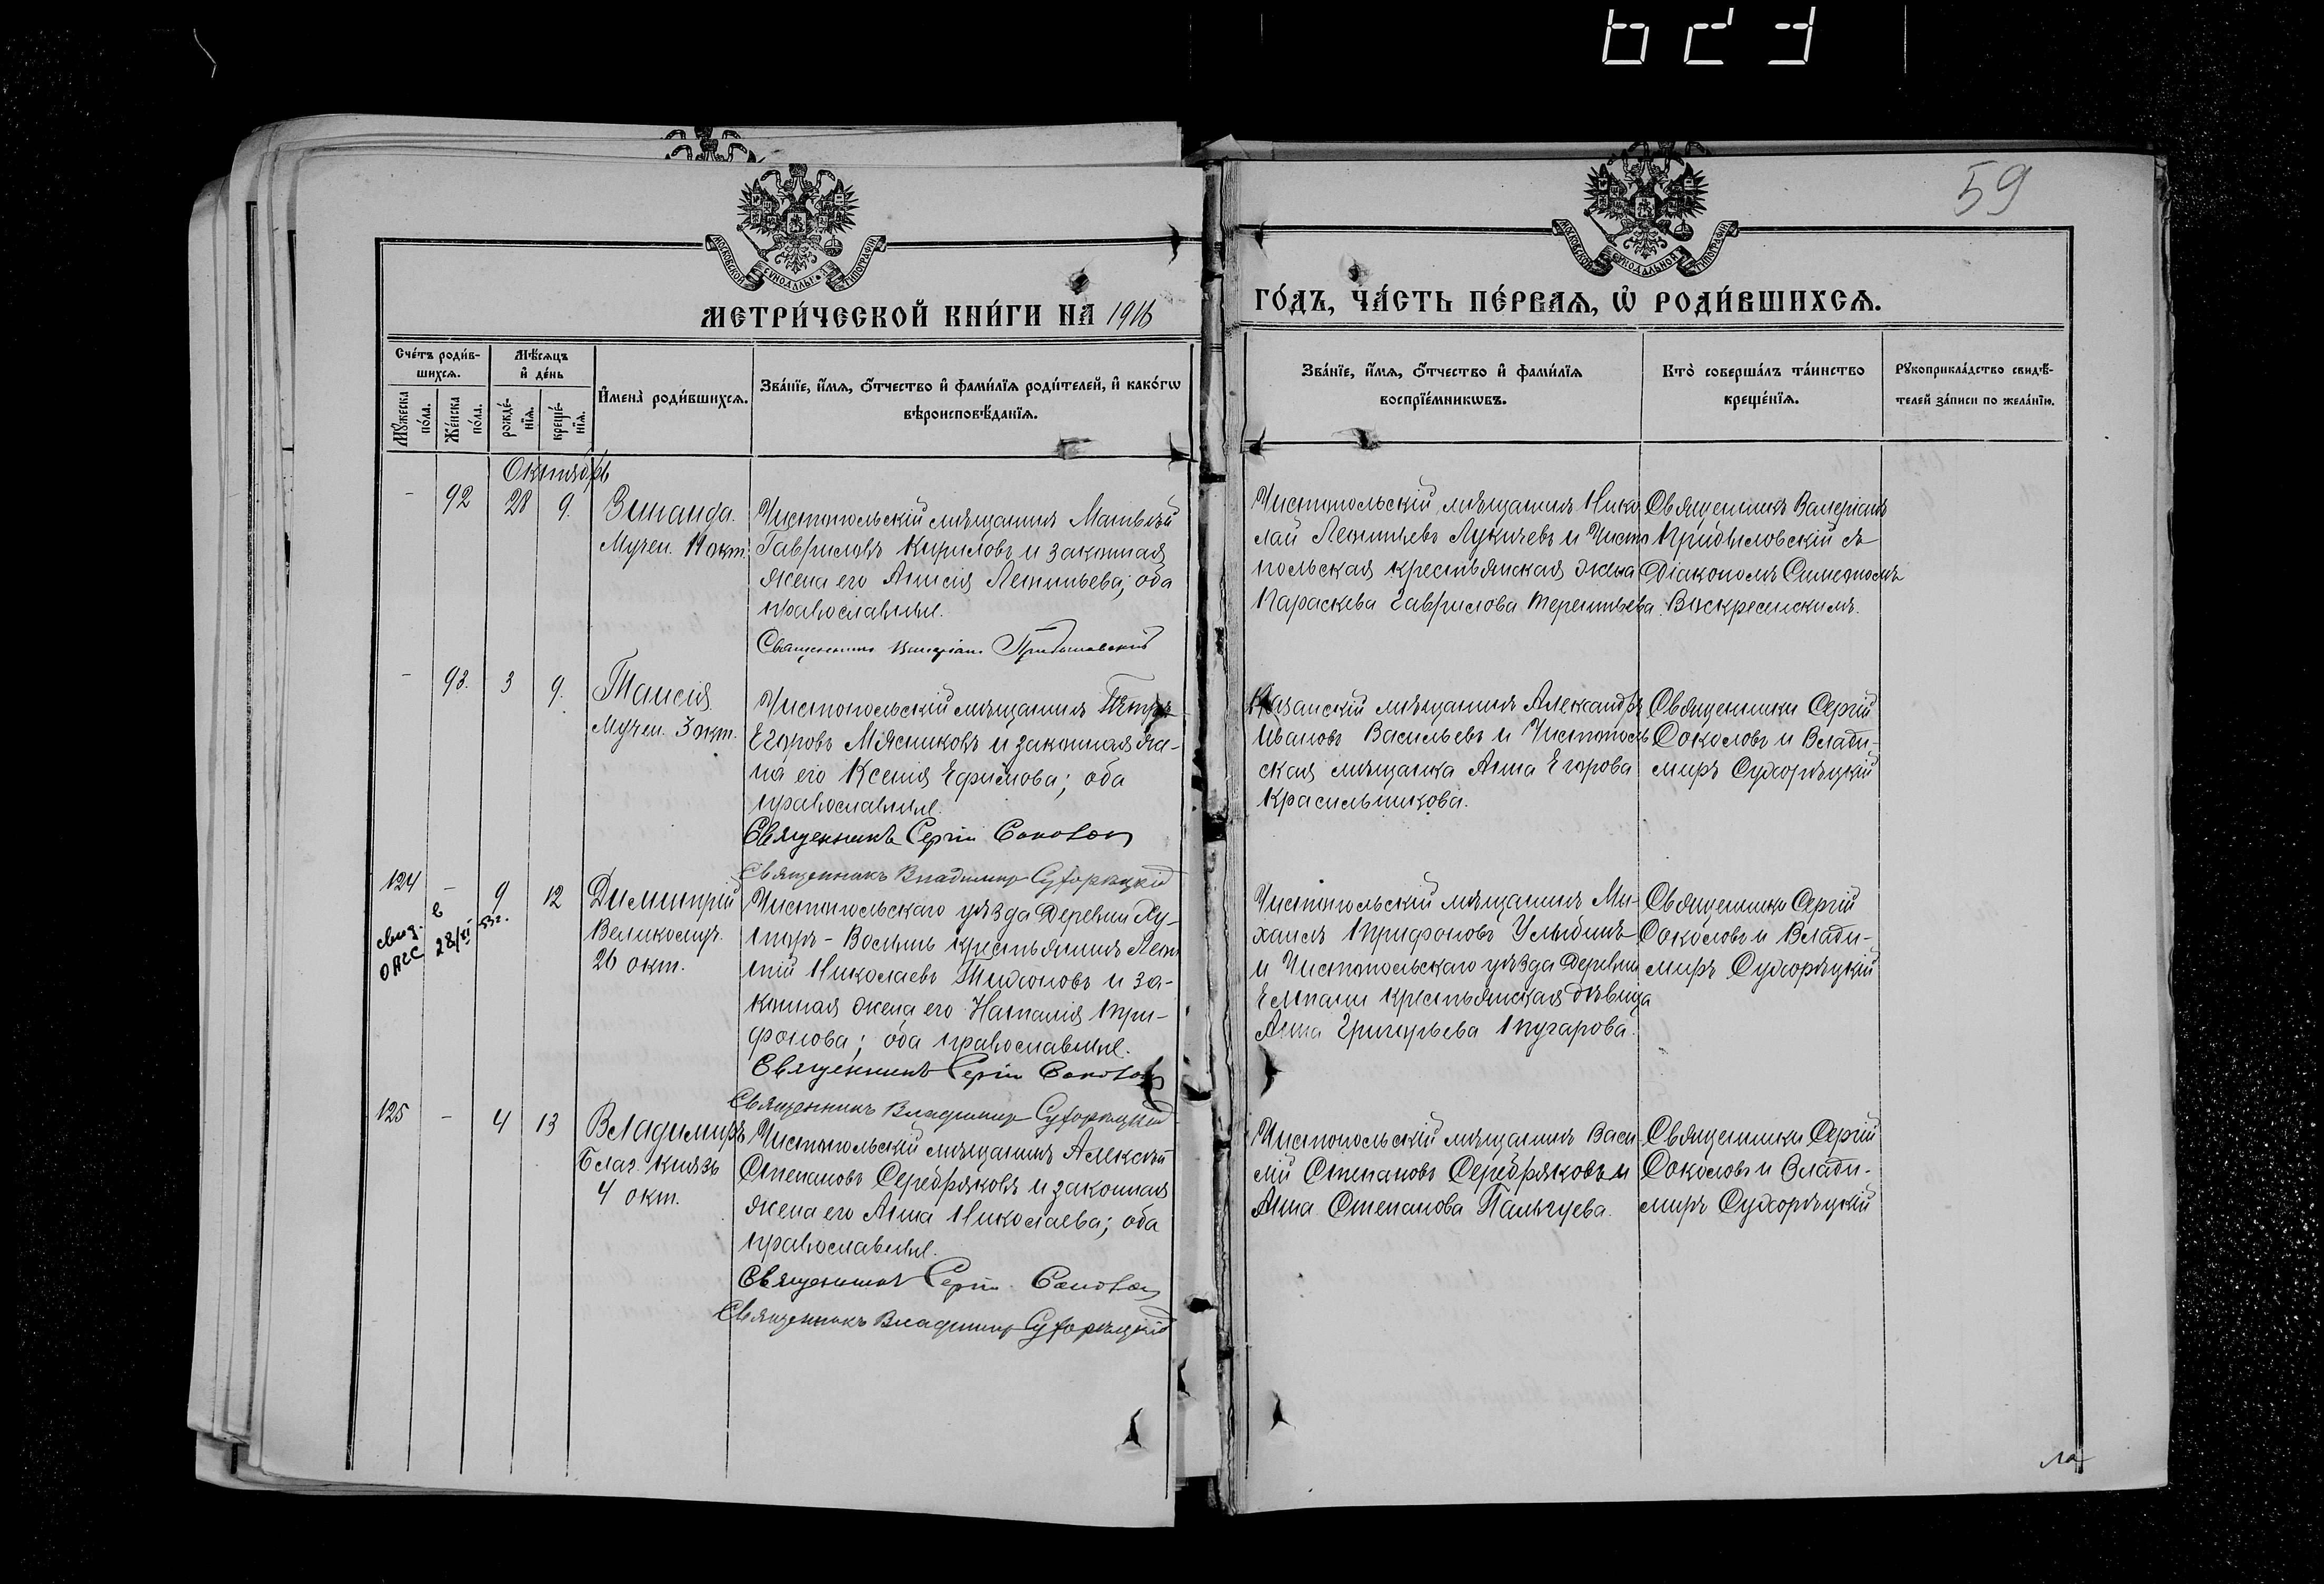 623
59
МОСКОВСКОЙ СѴНОДАЛЬНОЙ ТИПОГРАФІИ
МОСКОВСКОЙ СѴНОДАЛЬНОЙ ТИПОГРАФІИ
МЕТРИ́ЧЕСКОЙ КНИ́ГИ НА 1916
ГО́ДЪ, ЧА́СТЬ ПЕ́РВАѦ, Ѡ҆ РОДИ́ВШИХСѦ.
Сче́тъ роди́в-
шихсѧ.
Мꙋ́жеска по́ла.
Же́нска по́ла.
Мѣ́сѧцъ
и҆ де́нь
рожде́-
нїѧ.
креще́-
нїѧ.
И҆мена̀ роди́вшихсѧ.
Зва́нїе, и҆́мѧ, ѻ҆́тчество и҆ фами́лїѧ роди́телей, и҆ како́гѡ
вѣроисповѣ́данїѧ.
Зва́нїе, и҆́мѧ, ѻ҆́тчество и҆ фами́лїѧ
воспрїе́мникѡвъ.
Кто̀ соверша́лъ та́инство
креще́нїѧ.
Рꙋкоприкла́дство свидѣ́-
телей за́писи по жела́нїю.
Октябрь
- 92 28 9.
Зинаида.
Мучен. 11 окт.
Чистопольскій мѣщанинъ Матвѣй
Гавриловъ Кириловъ и законная
жена его Анисія Леонтьева; оба
православные.
Священникъ Валеріанъ Придиловскій
Чистопольскій мѣщанинъ Нико
лай Леонтьевъ Лукичевъ и Чисто
польская крестьянская жена
Параскева Гаврилова Терентьева.
Священникъ Валеріанъ
Придиловскій съ
Діакономъ Симеономъ
Воскресенскимъ.
- 93. 3 9.
Таисія
Мучен. 3 окт.
Чистопольскій мѣщанинъ Петръ
Егоровъ Мясниковъ и законная же-
на его Ксенія Ефимова; оба
православные.
Священникъ Сергій Соколовъ
Священникъ Владимир Сухорѣцкій
Казанскій мѣщанинъ Александръ
Ивановъ Васильевъ и Чистополь
ская мѣщанка Анна Егорова
Красильникова.
Священники Сергій
Соколовъ и Влади-
миръ Сухорѣцкій
124 - 9 12
свид. в
ОАГС 28/XI 53г.
Димитрій
Великомуч.
26 окт.
Чистопольскаго уѣзда деревни Ху-
торъ-Волынь крестьянинъ Леон
тій Николаевъ Тихоновъ и за-
конная жена его Наталія Три-
фонова; оба православные.
Священникъ Сергій Соколовъ
Священникъ Владимир Сухорѣцкій
Чистопольскій мѣщанинъ Ми-
хаилъ Трифоновъ Улыбинъ
и Чистопольскаго уѣзда деревни
крестьянская дѣвица
Анна Григорьева
Священники Сергій
Соколовъ и Влади-
миръ Сухорѣцкій
125 - 4 13
Владимиръ
Благ. Князь
4 окт.
Чистопольскій мѣщанинъ Алексѣй
Степановъ Серебряковъ и законная
жена его Анна Николаева; оба
православные.
Священникъ Сергій Соколовъ
Священникъ Владимир Сухорѣцкій
Чистопольскій мѣщанинъ Васи
лій Степановъ Серебряковъ и
Анна Степанова Пальгуева.
Священники Сергій
Соколовъ и Влади-
миръ Сухорѣцкій